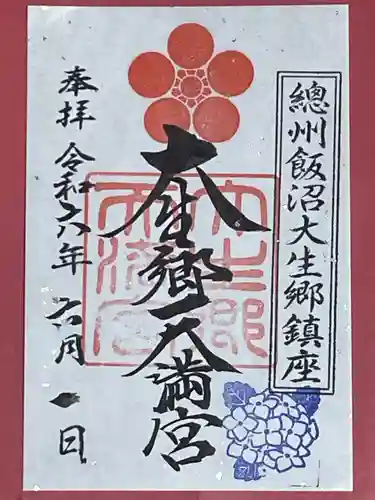 總州飯沼大生郷鎮座
大生郷天満宮
奉拝 令和六年 六月 一日